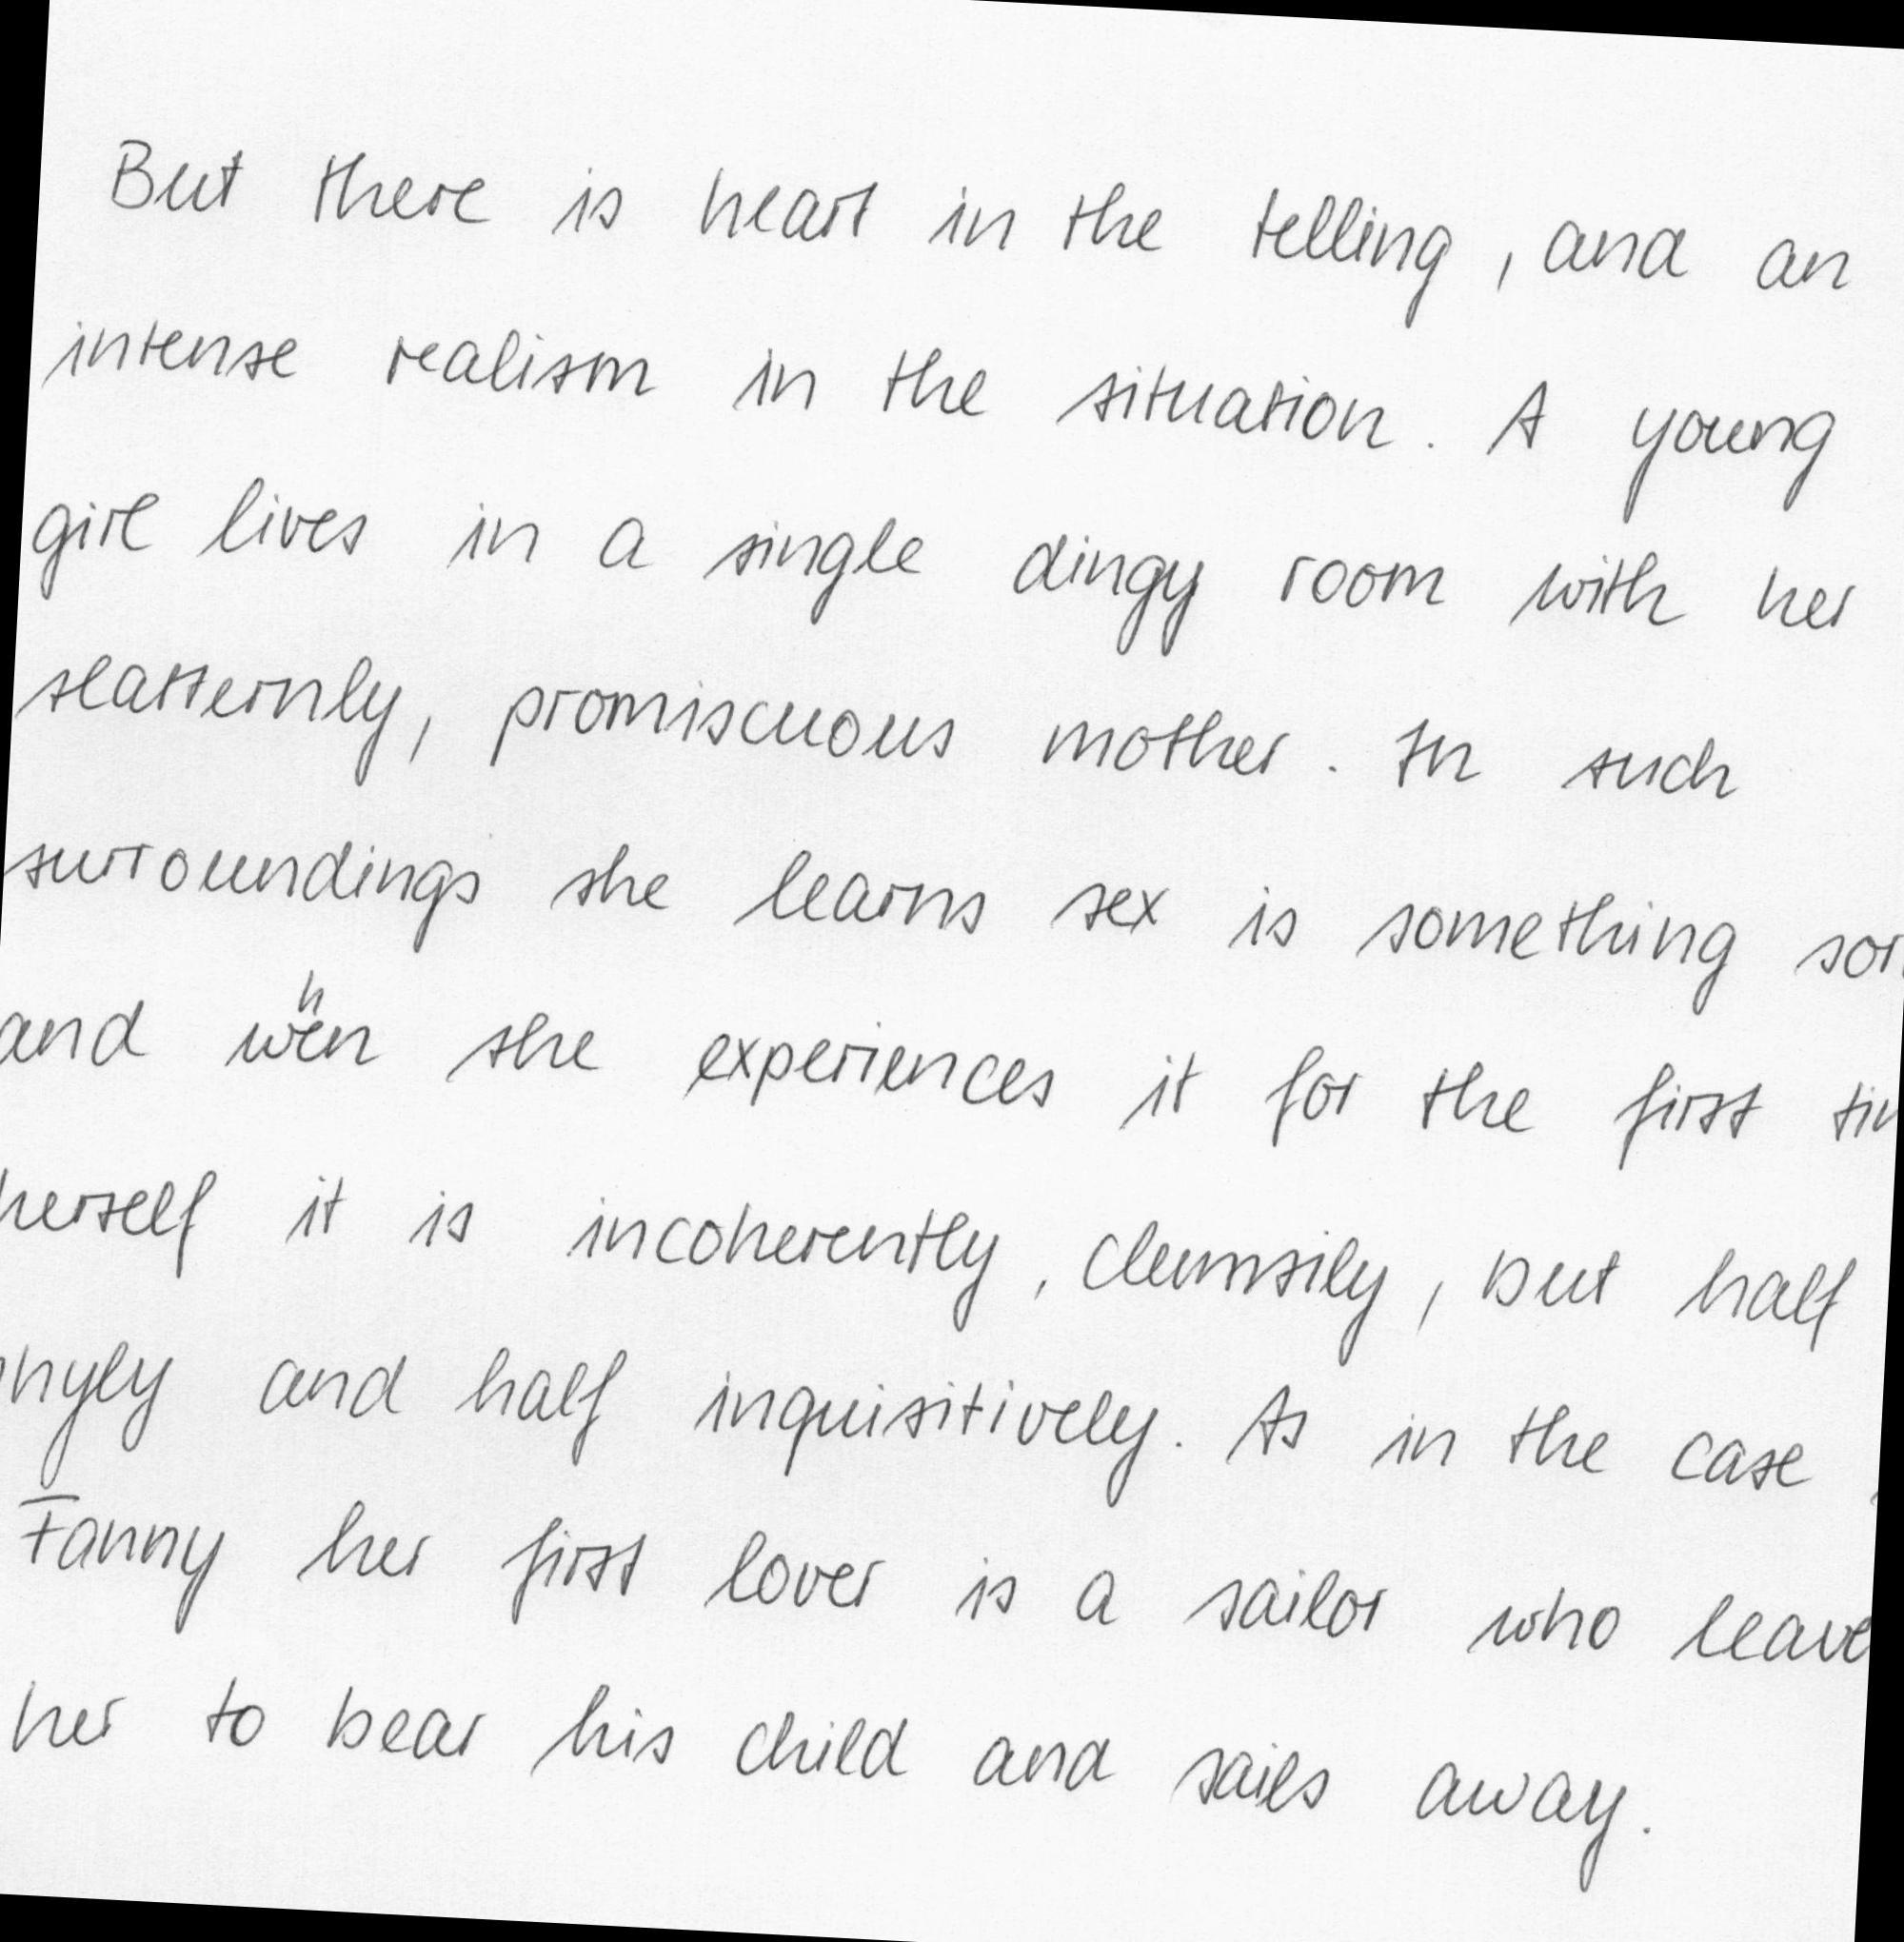 But there is heart in the telling, and an
intense realism in the situation. A young
girl lives in a single dingy room with her
slatternly, promiscuous mother. In such
surroundings she learns sex is something
and when she experiences it for the first
herself it is incoherently, clumsily, but half
and half inquisitively. As in the case
Fanny her first lover is a sailor who leave
her to bear his child and sails away.